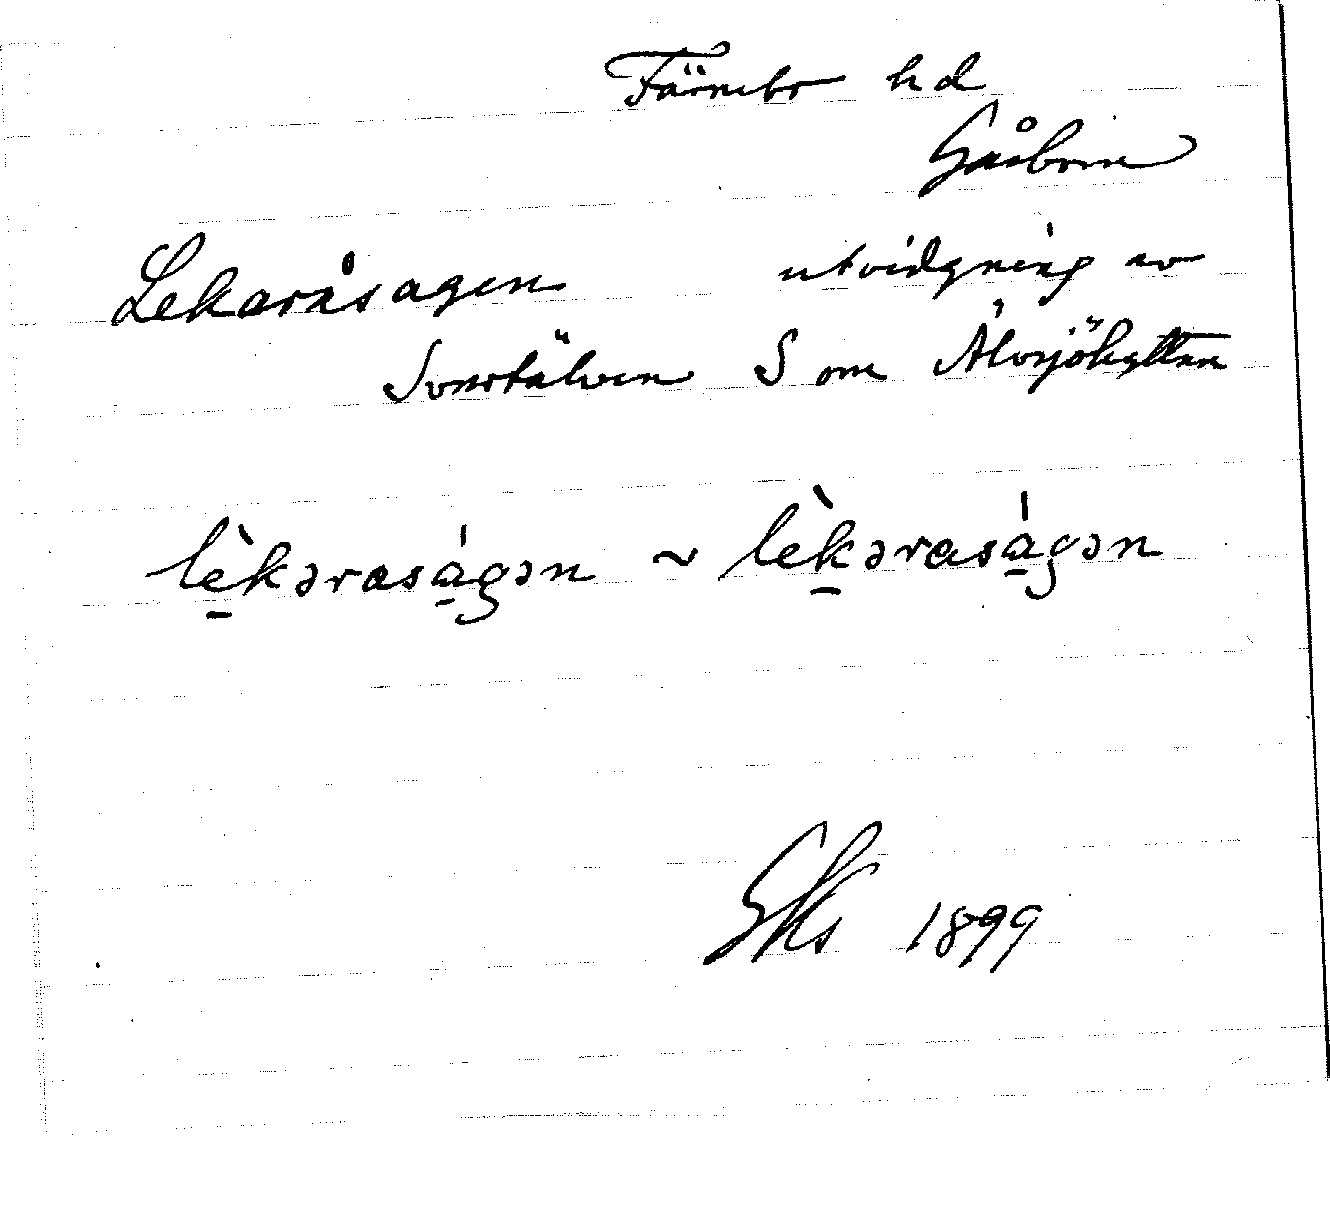 Färnebo hd
Gåsborn
Lekaråsagen utvidgning av
Svartälven S om Älvsjöhyttan
lèkəraságən ~ lèkəraságən
1899